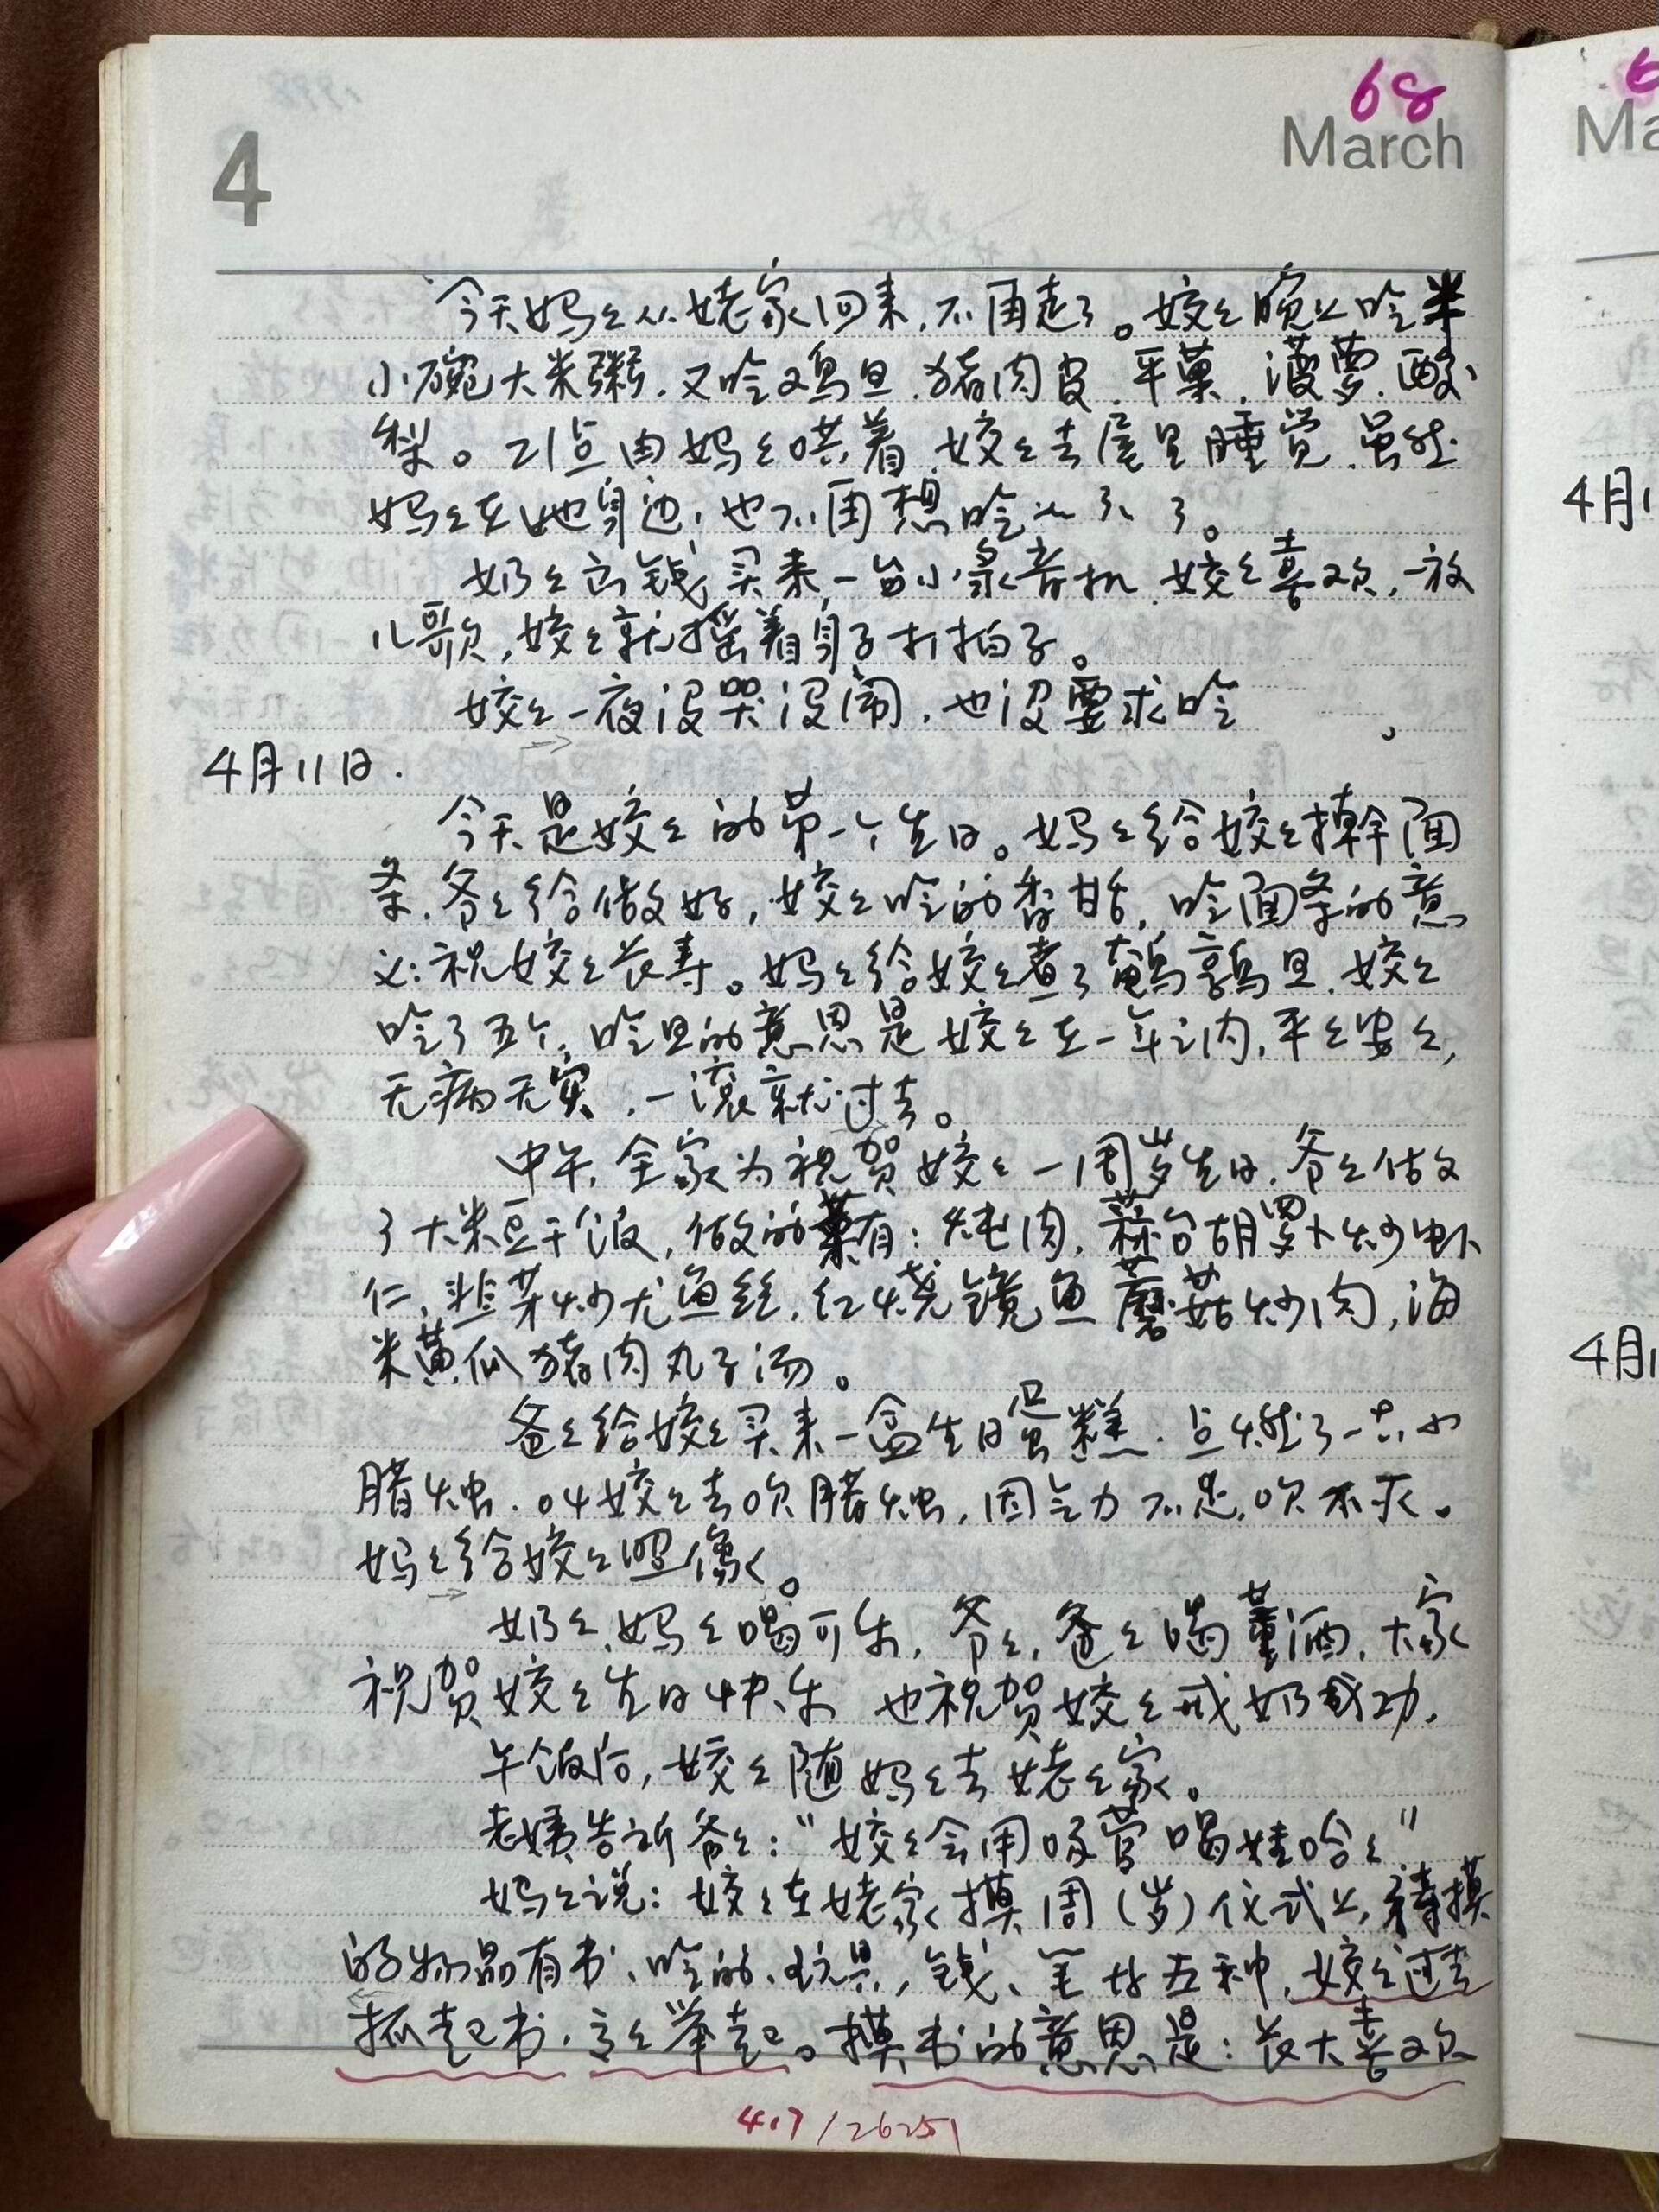 68
4 March
今天妈妈从姥家回来,不再走了。姣姣晚上吃半
小碗大米粥.又吃鸡旦.猪肉皮.苹菓,菠萝.酸
梨。21点由妈妈哄着.姣姣去屋里睡觉.虽然
妈妈在她身边,也不再想吃
奶奶出钱买来一台小录音机.姣姣喜欢,一放
儿歌,姣姣就摇着身子打拍子。
姣姣一夜没哭没闹.也没要求吃 。
4月11日.
今天是姣姣的第一个生日。妈妈给姣姣擀面
条.爷爷给做好,姣姣吃的香甜,吃面条的意
义:祝姣姣长寿。妈妈给姣姣煮了鹌鹑旦.姣姣
吃了五个,吃旦的意思是姣姣在一年之内,平平安安,
无病无灾,一滚就过去。
中午,全家为祝贺姣姣一周岁生日,爷爷做
了大米豆干饭,做的菜有:炖肉,蒜台胡罗卜炒虾
仁,韭菜炒尤鱼丝,红烧镜鱼 蘑菇炒肉,海
米黄瓜猪肉丸子汤。
爸爸给姣姣买来一盒生日蛋糕.点燃了一支小
腊烛.叫姣姣去吹腊烛,因气力不足,吹不灭。
妈妈给姣姣照像。
奶奶、妈妈喝可乐,爷爷,爸爸喝董酒,大家
祝贺姣姣生日快乐 也祝贺姣姣戒奶成功.
午饭后,姣姣随妈妈去姥姥家。
老姨告诉爷爷:“姣姣会用吸管喝娃哈哈”
妈妈说:姣姣在姥家摸周(岁)仪式上,待摸
的物品有书、吃的、玩具,钱、笔好五种,姣姣过去
抓起书,高高举起。摸书的意思是:长大喜欢
4.7/26251
Ma
4月1
4月1